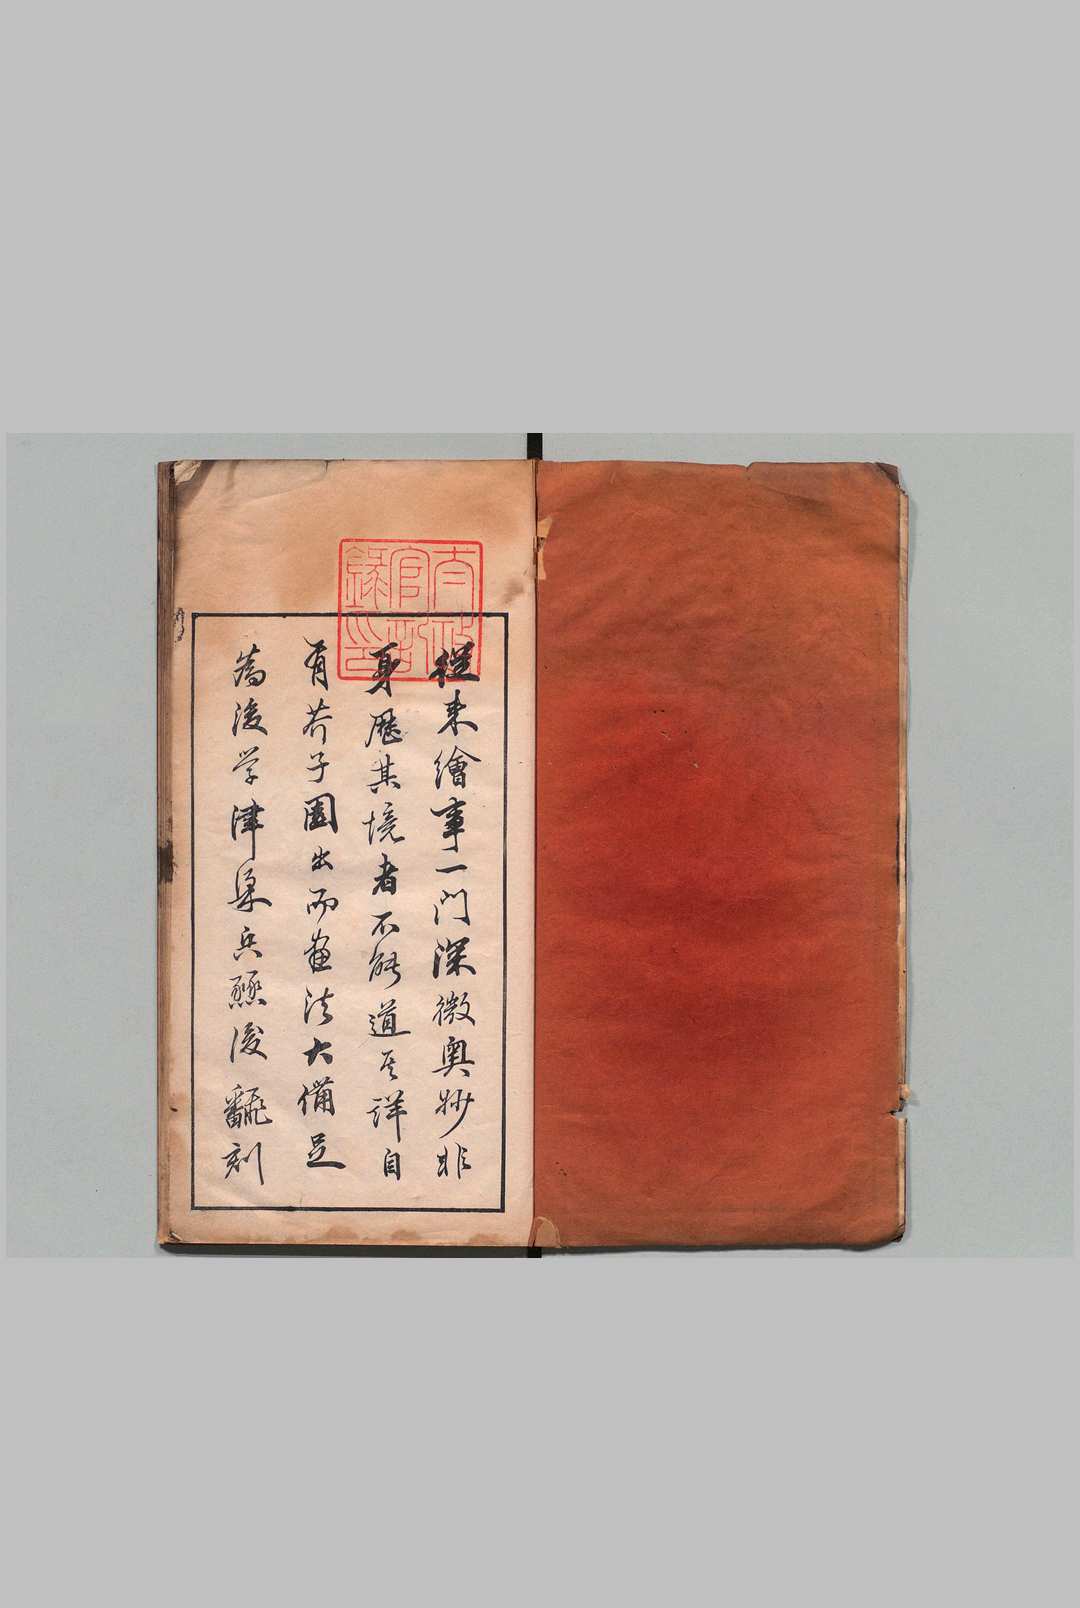 太政
官記
録印
從来繪事一門深微奥妙非
身歷其境者不能道其詳自
有芥子園出而畫法大備足
為後学津梁兵燹後飜刻